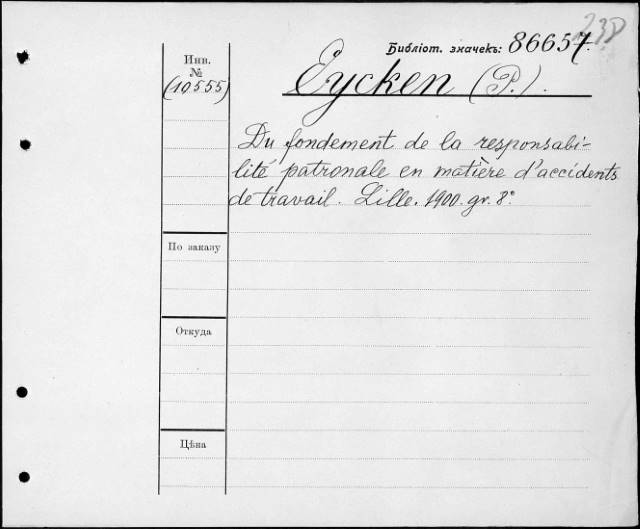 238
Библіот. значекъ: 86657.
Инв.
№
(10555)
Eycken (P.).
Du fondement de la responsabi-
lité patronale en matière d'accidents
de travail. Lille. 1900. gr. 8°.
По заказу
Откуда
Цѣна